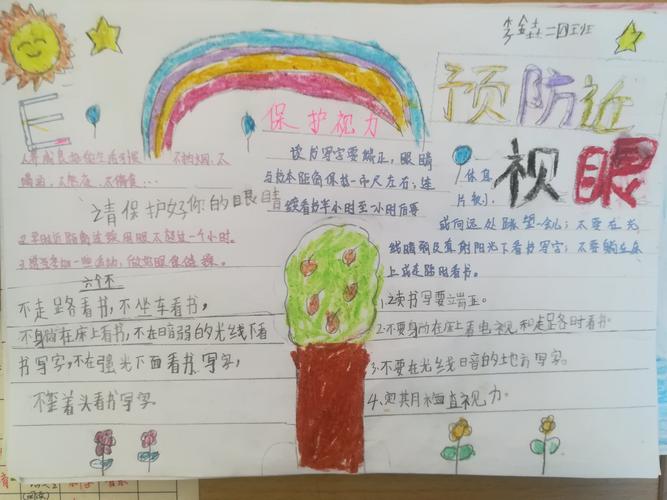 二四班
预防近
视眼
E
保护视力
读书写字要端正,眼睛
与书本距离保持一市尺左右;连
续看书半小时至一小时后要
休息
片刻,
或向远处眺望一会儿;不要在光
线暗弱及直射阳光下看书写字;不要躺在床
上或走路时看书。
不吸烟、不
喝酒、不熬夜、不偏食…
请保护好你的眼睛
2.早时近距离连续用眼不超过一个小时。
六个不
不走路看书,不坐车看书,
不躺在床上看书,不在暗弱的光线下看
书写字,不在强光下面看书写字,
不歪着头看书写字。
1、读书写字要立端正。
2、不要躺在床上看电视和走路时看书。
3、不要在光线暗的地方写字。
4、定其月检查视力。